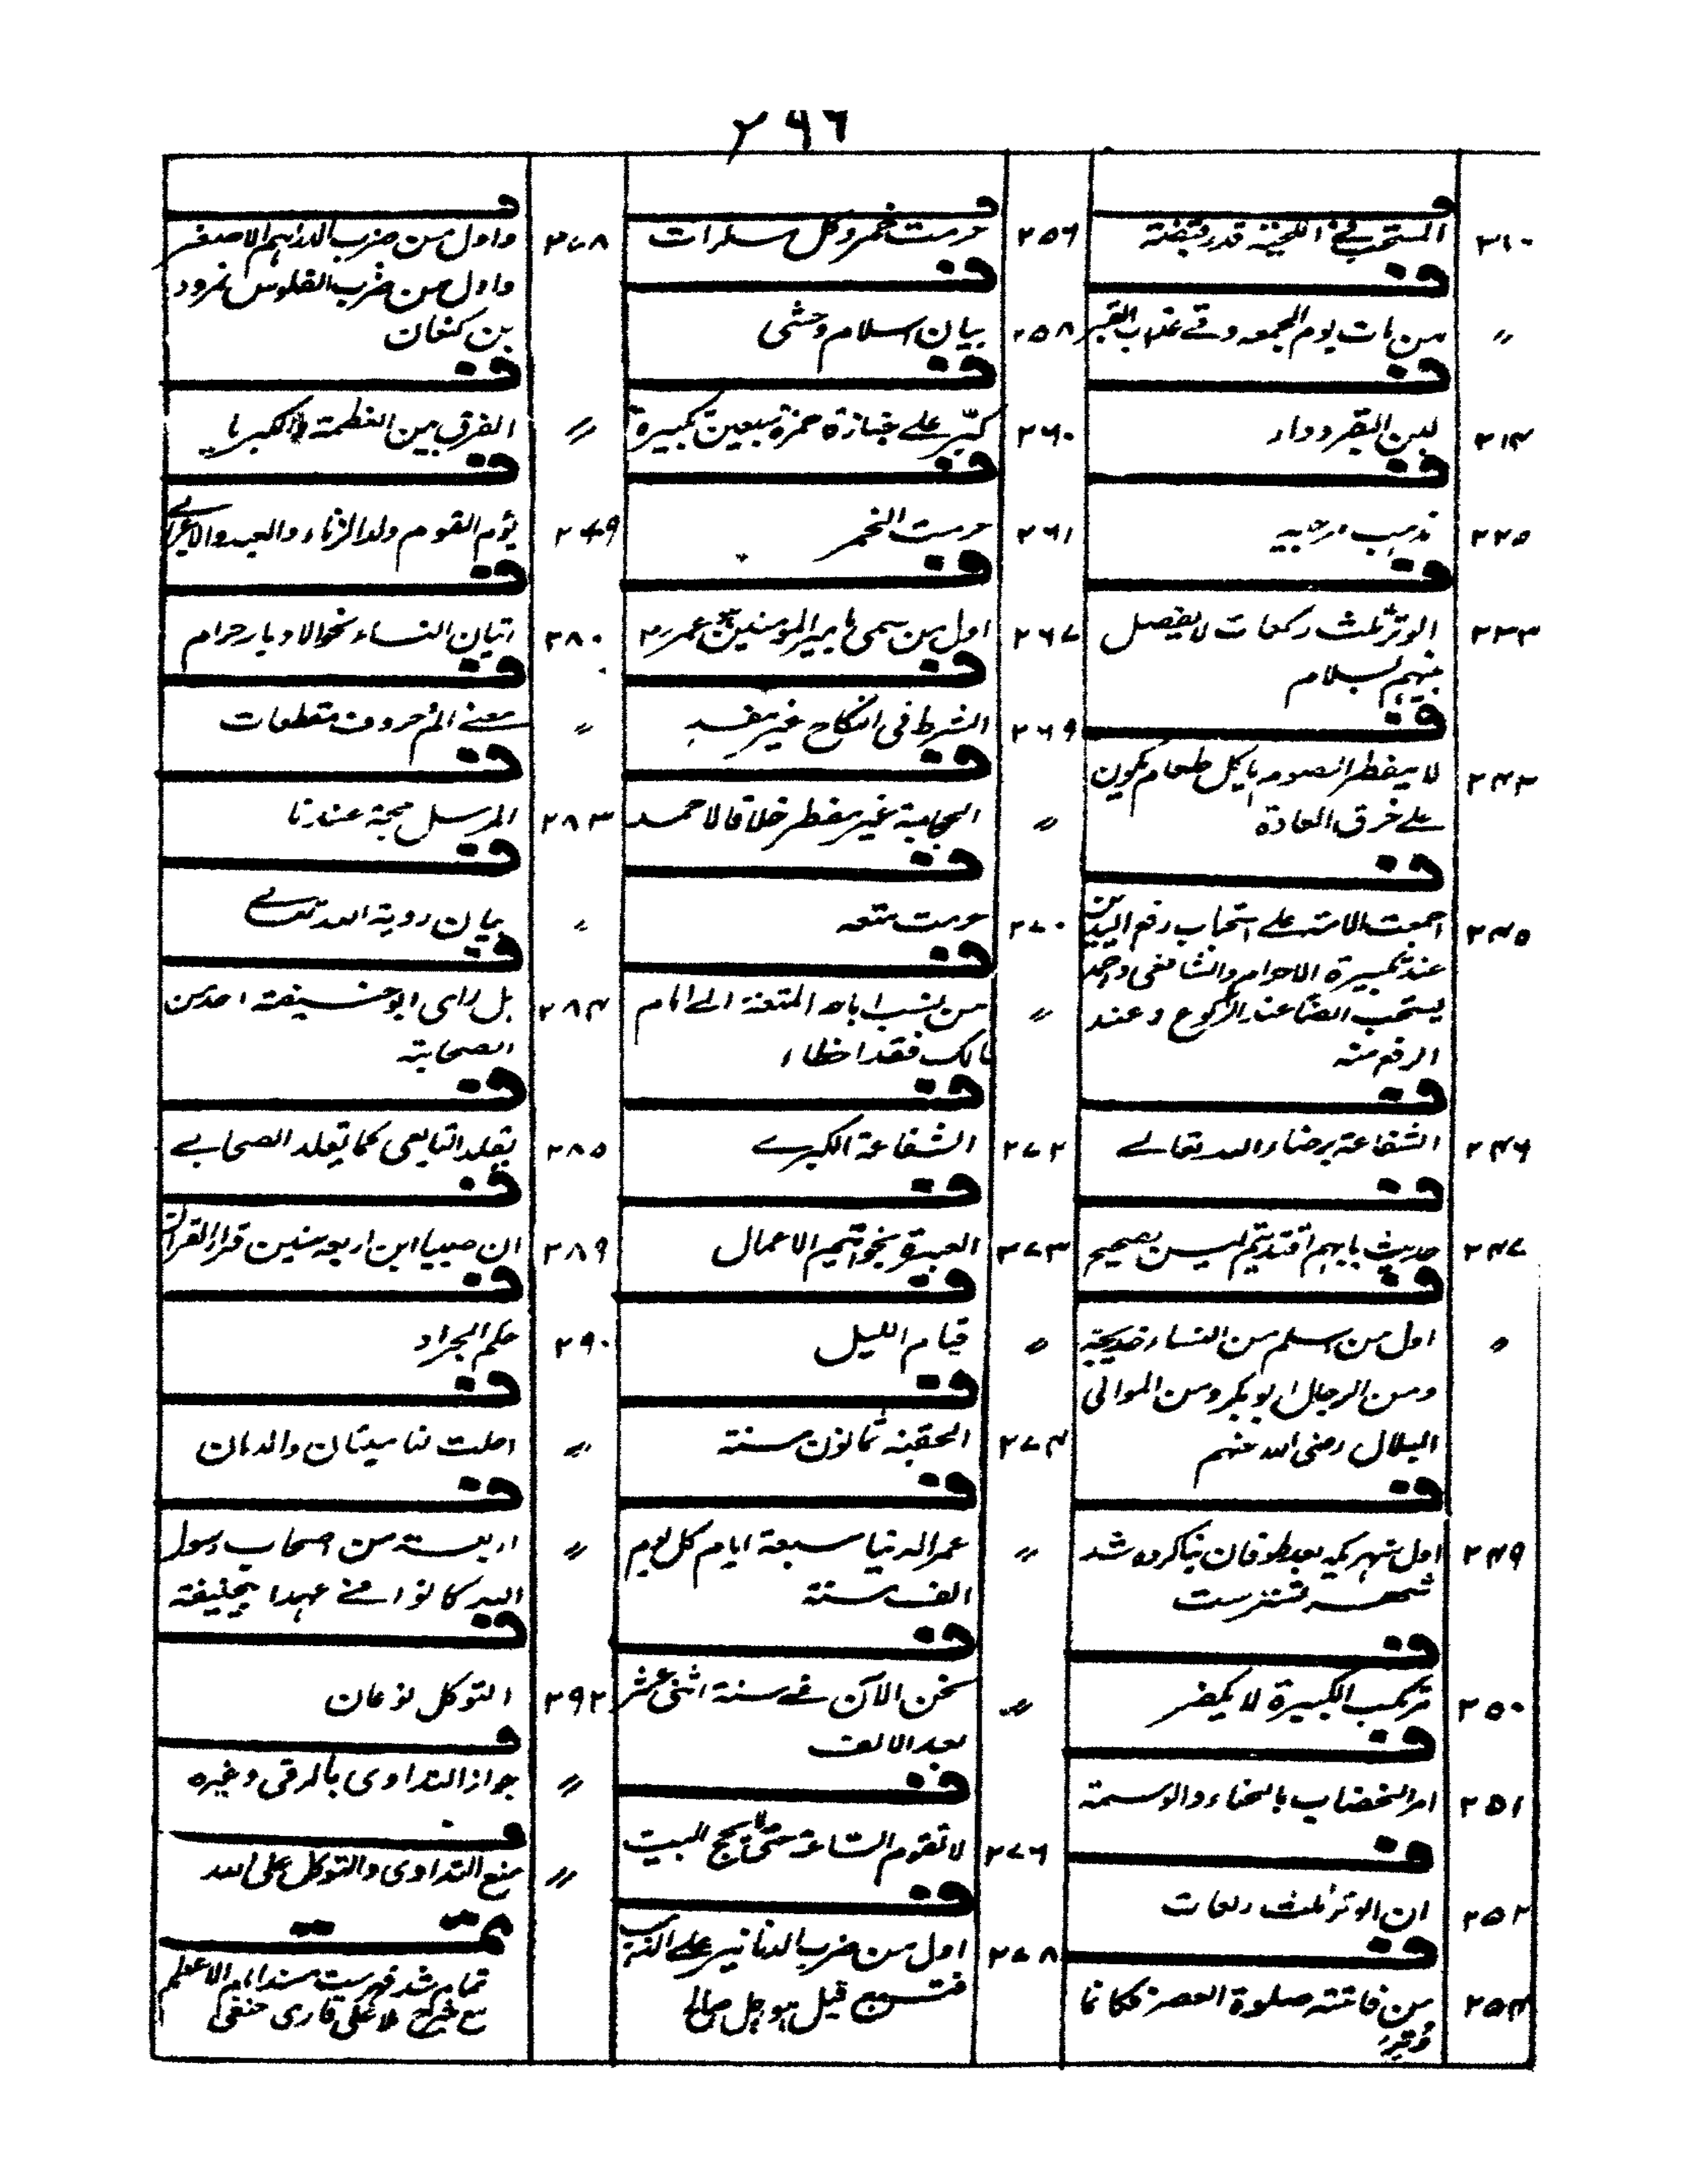 ۲۹۶
ف
۲۱۰ المستحب في اللحية قدر قبضة
ف
〃 من مات يوم الجمعه وقے عذاب القبر
ف
۲۱۴ لبن البقر دواء
ف
۲۲۵ مذهب مرجيه
ف
۲۳۳ الوتر ثلث ركعات لا يفصل
بينهم بسلام
ف
۲۴۲ لا يفطر الصوم باكل طعام يكون
علے خرق العادة
ف
۲۴۵ اجمعت الامة علے استحباب رفع اليدين
عند تكبيرة الاحرام والشافعى واحمد
يستحب ايضا عند الركوع وعند
الرفع منه
ف
۲۴۶ الشفاعة برضاء الله تعالے
ف
۲۴۷ حديث بايهم اقتديتم ليس بصحيح
ف
〃 اول من اسلم من النساء خديجة
ومن الرجال ابو بكر ومن الموالى
البلال رضى الله عنهم
ف
۲۴۹ اول شهر كه بعد طوفان بنا كرده شد
شهر تستر ست
ف
۲۵۰ مرتكب الكبيرة لا يكفر
ف
۲۵۱ امر الخضاب بالحناء والوسمة
ف
۲۵۲ ان الوتر ثلث ركعات
ف
۲۵۴ من فاتته صلوة العصر فكانما
وُتِرَ
ف
۲۵۶ حرمت خمر وكل مسكرات
ف
۲۵۸ بيان اسلام وحشى
ف
۲۶۰ كبّر علے جنازة حمزة سبعين تكبيرة
ف
۲۶۱ حرمت الخمر
ف
۲۶۷ اول من سمى بامير المومنين عمر رض
ف
۲۶۹ الشرط فى النكاح غير مفسد
ف
〃 الحجامة غير مفطر خلافا لاحمد
ف
۲۷۰ حرمت متعه
ف
〃 من ينسب اباحة المتعة الى امام
مالك فقد اخطاء
ف
۲۷۲ الشفاعة الكبرے
ف
۲۷۳ العبرة بخواتيم الاعمال
ف
〃 قيام الليل
ف
۲۷۴ الحقبة ثمانون سنة
ف
〃 عمر الدنيا سبعة ايام كل يوم
الف سنة
ف
〃 نحن الآن فے سنة اثنى عشر
بعد الالف
ف
۲۷۶ لا تقوم الساعة حتى لا يحج البيت
ف
۲۷۸ اول من ضرب الدنانير علے الذهب
تبع قيل هو رجل صالح
ف
۲۷۸ واول من ضرب الدراهم الاصغر
واول من ضرب الفلوس نمرود
بن كنعان
ف
〃 الفرق بين العظمة والكبرياء
ف
۲۷۹ يؤم القوم ولد الزناء والعبد والاعرابے
ف
۲۸۰ اتيان النساء نحو الادبار حرام
ف
〃 معنے الم حروف مقطعات
ف
۲۸۳ المرسل حجة عندنا
ف
〃 بيان روية الله تعالے
ف
۲۸۴ بل راى ابو حنيفة احد من
الصحابة
ف
۲۸۵ يقلد التابعى كما يقلد الصحابے
ف
۲۸۹ ان صبيا ابن اربعه سنين قراء القرآن
ف
۲۹۰ حكم الجراد
ف
〃 احلت لنا ميتان والدمان
ف
〃 اربعة من اصحاب رسول
الله كانوا فے عهد ابيحنيفة
ف
۲۹۲ التوكل نوعان
ف
〃 جواز التداوى بالرقى وغيره
ف
〃 منع التداوى والتوكل على الله
تمت
تمام شد فهرست مسند امام الاعظم
مع شرح ملا على قارى حنفى